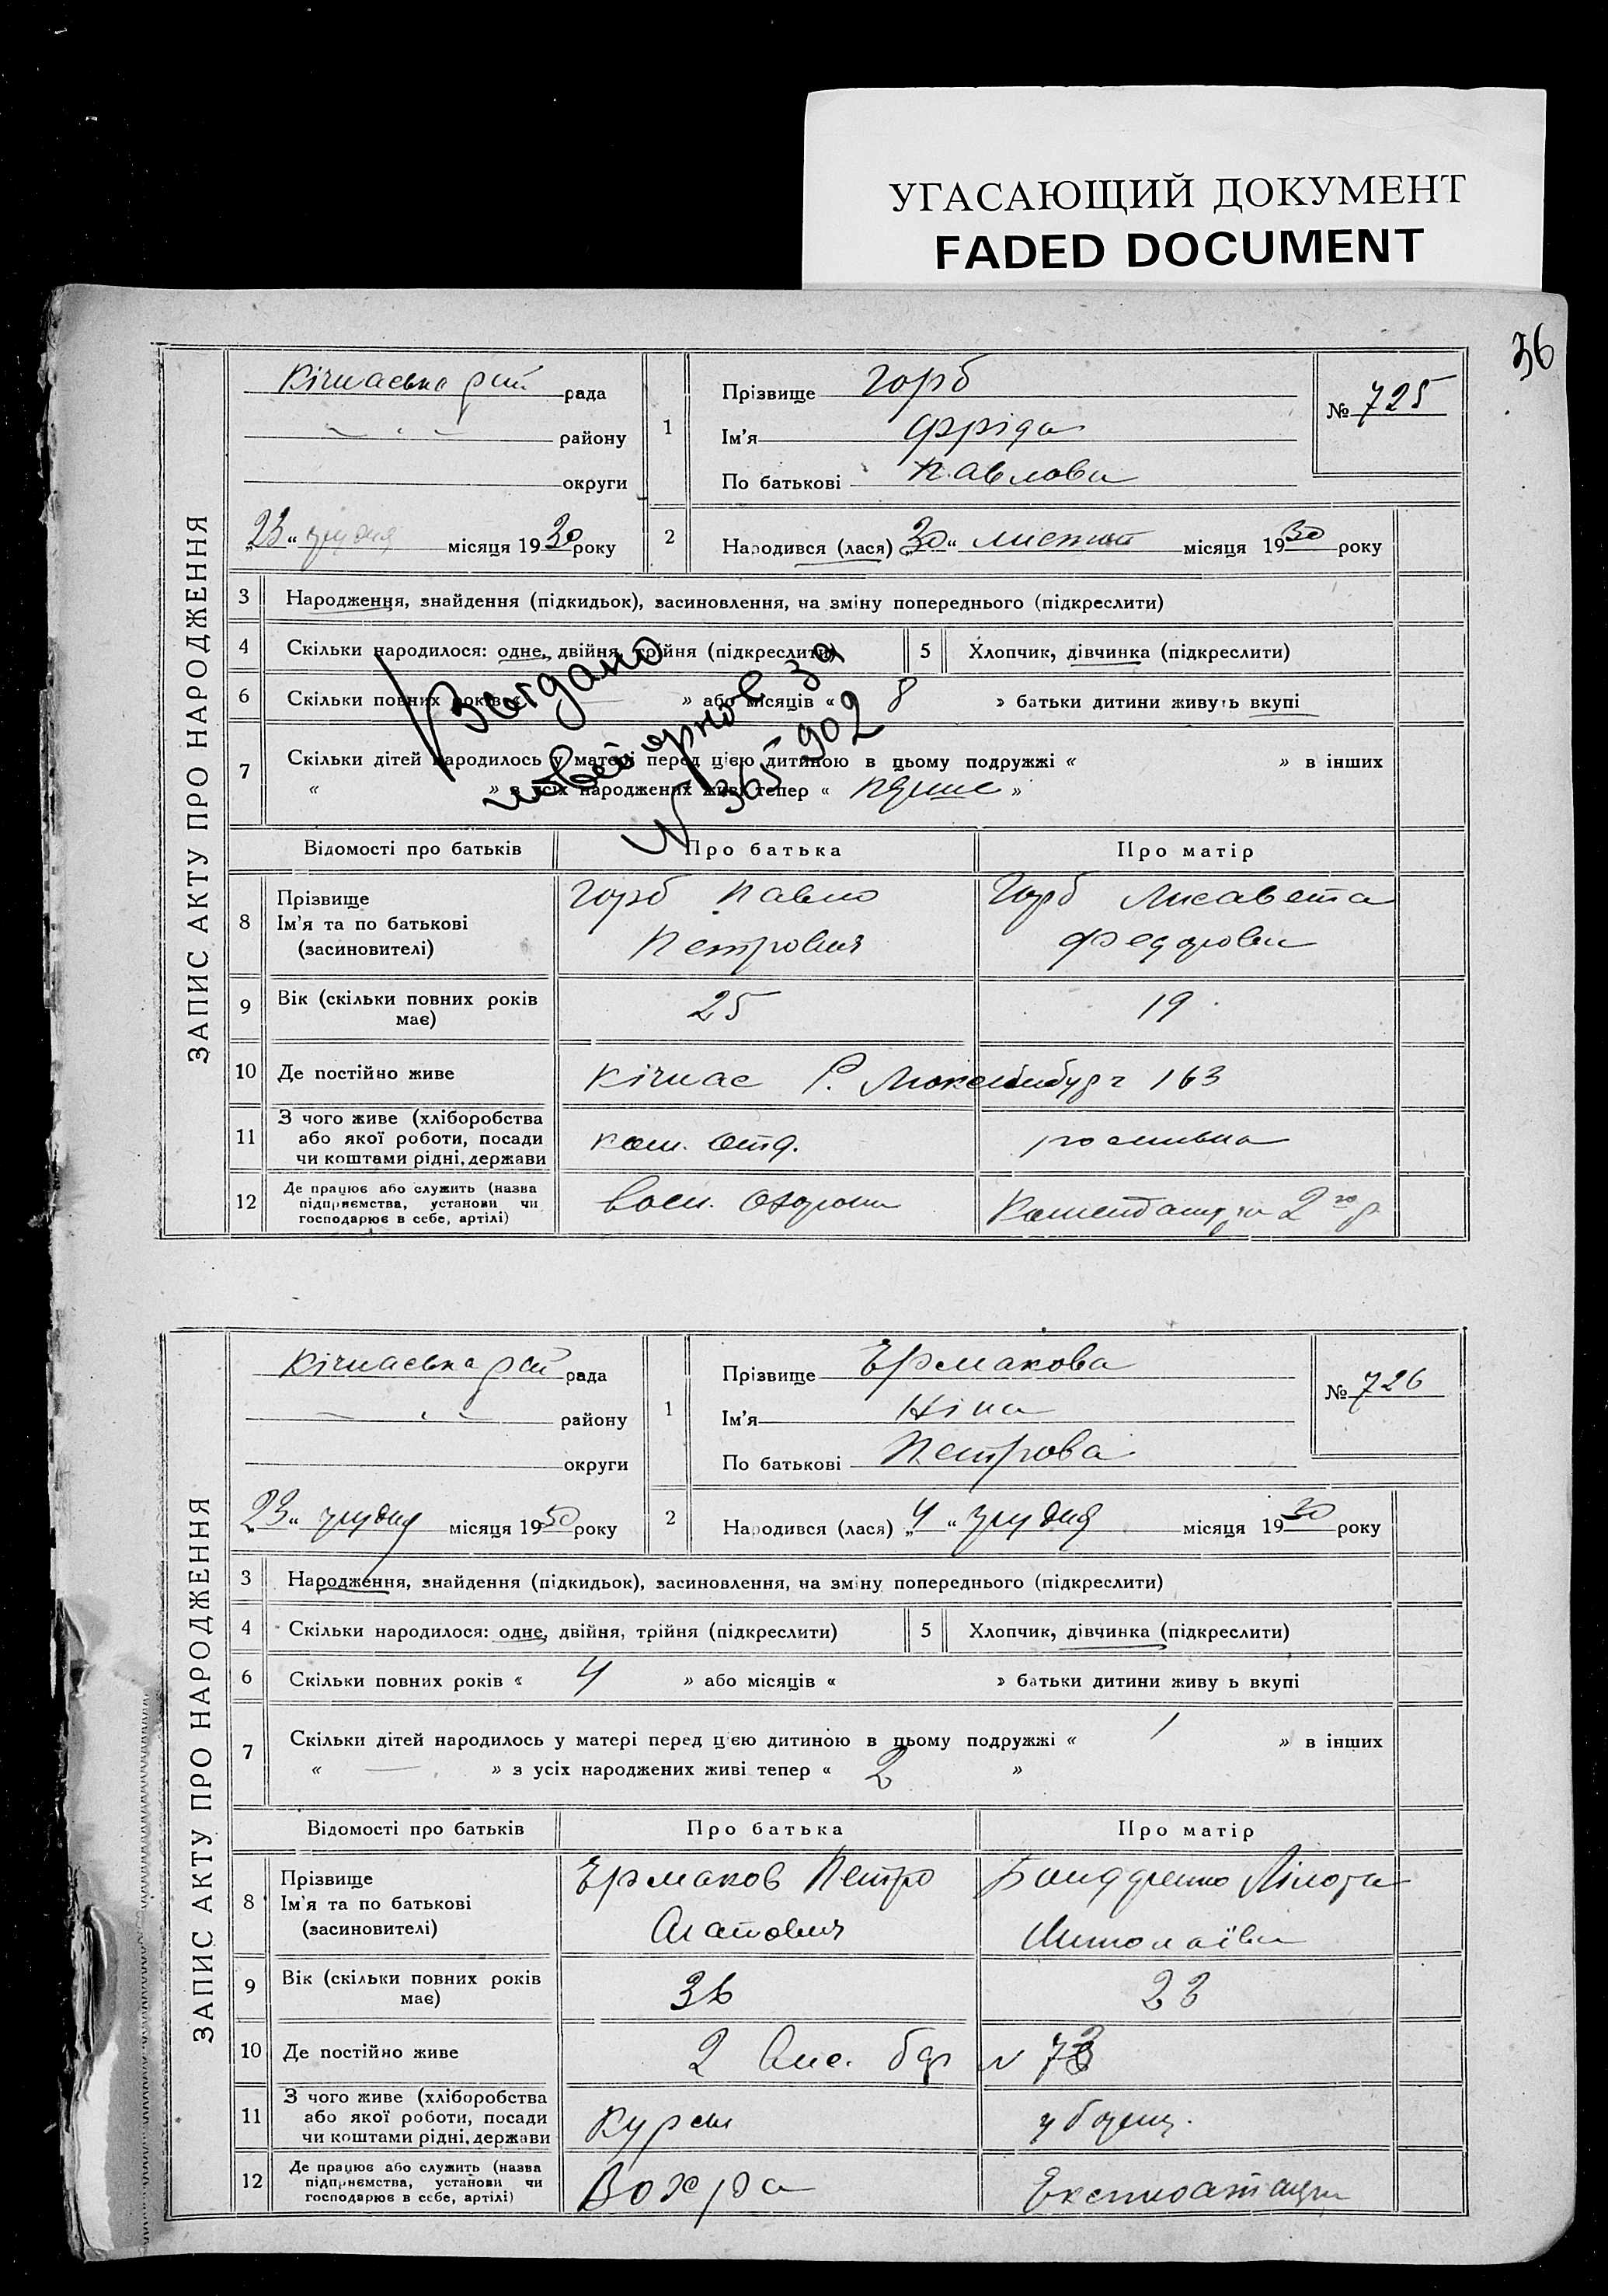 УГАСАЮЩИЙ ДОКУМЕНТ
FADED DOCUMENT
36
ЗАПИС АКТУ ПРО НАРОДЖЕННЯ
Кічкаська рай рада
району
округи
„23“ грудня місяця 1930 року
1 Прізвище Горб
Ім’я Фріда
По батькові Павловн
№ 725
2 Народився (лася) „30“ листоп місяця 1930 року
3 Народження, знайдення (підкидьок), засиновлення, на зміну попереднього (підкреслити)
4 Скільки народилося: одне, двійня, трійня (підкреслити)
5 Хлопчик, дівчинка (підкреслити)
6 Скільки повних років « — » або місяців « 8 » батьки дитини живуть вкупі
7 Скільки дітей народилось у матері перед цією дитиною в цьому подружжі « » в інших
« » з усіх народжених живі тепер « перше »
за
№ 365902
Відомості про батьків Про батька Про матір
8 Прізвище
Ім’я та по батькові
(засиновителі)
Горб Павло
Петрович
Горб Лисавета
Федоровн
9 Вік (скільки повних років
має)
25 19
10 Де постійно живе Кічкас Р. Люксембург 163
11 З чого живе (хліборобства
або якої роботи, посади
чи коштами рідні, держави
ком. отд.
12 Де працює або служить (назва
підприємства, установи чи
господарює в себе, артілі)
воєн. охорони
ЗАПИС АКТУ ПРО НАРОДЖЕННЯ
Кічкаська рай рада
району
округи
„23“ грудня місяця 1930 року
1 Прізвище Ермакова
Ім’я Ніна
По батькові Петрова
№ 726
2 Народився (лася) „4“ грудня місяця 1930 року
3 Народження, знайдення (підкидьок), засиновлення, на зміну попереднього (підкреслити)
4 Скільки народилося: одне, двійня, трійня (підкреслити)
5 Хлопчик, дівчинка (підкреслити)
6 Скільки повних років « 4 » або місяців « » батьки дитини живу ь вкупі
7 Скільки дітей народилось у матері перед цією дитиною в цьому подружжі « 1 » в інших
« — » з усіх народжених живі тепер « 2 »
Відомості про батьків Про батька Про матір
8 Прізвище
Ім’я та по батькові
(засиновителі)
Ермаков Петро
Миколаївн
9 Вік (скільки повних років
має)
36 23
10 Де постійно живе 2 N 73
11 З чого живе (хліборобства
або якої роботи, посади
чи коштами рідні, держави
12 Де працює або служить (назва
підприємства, установи чи
господарює в себе, артілі)
Вохра